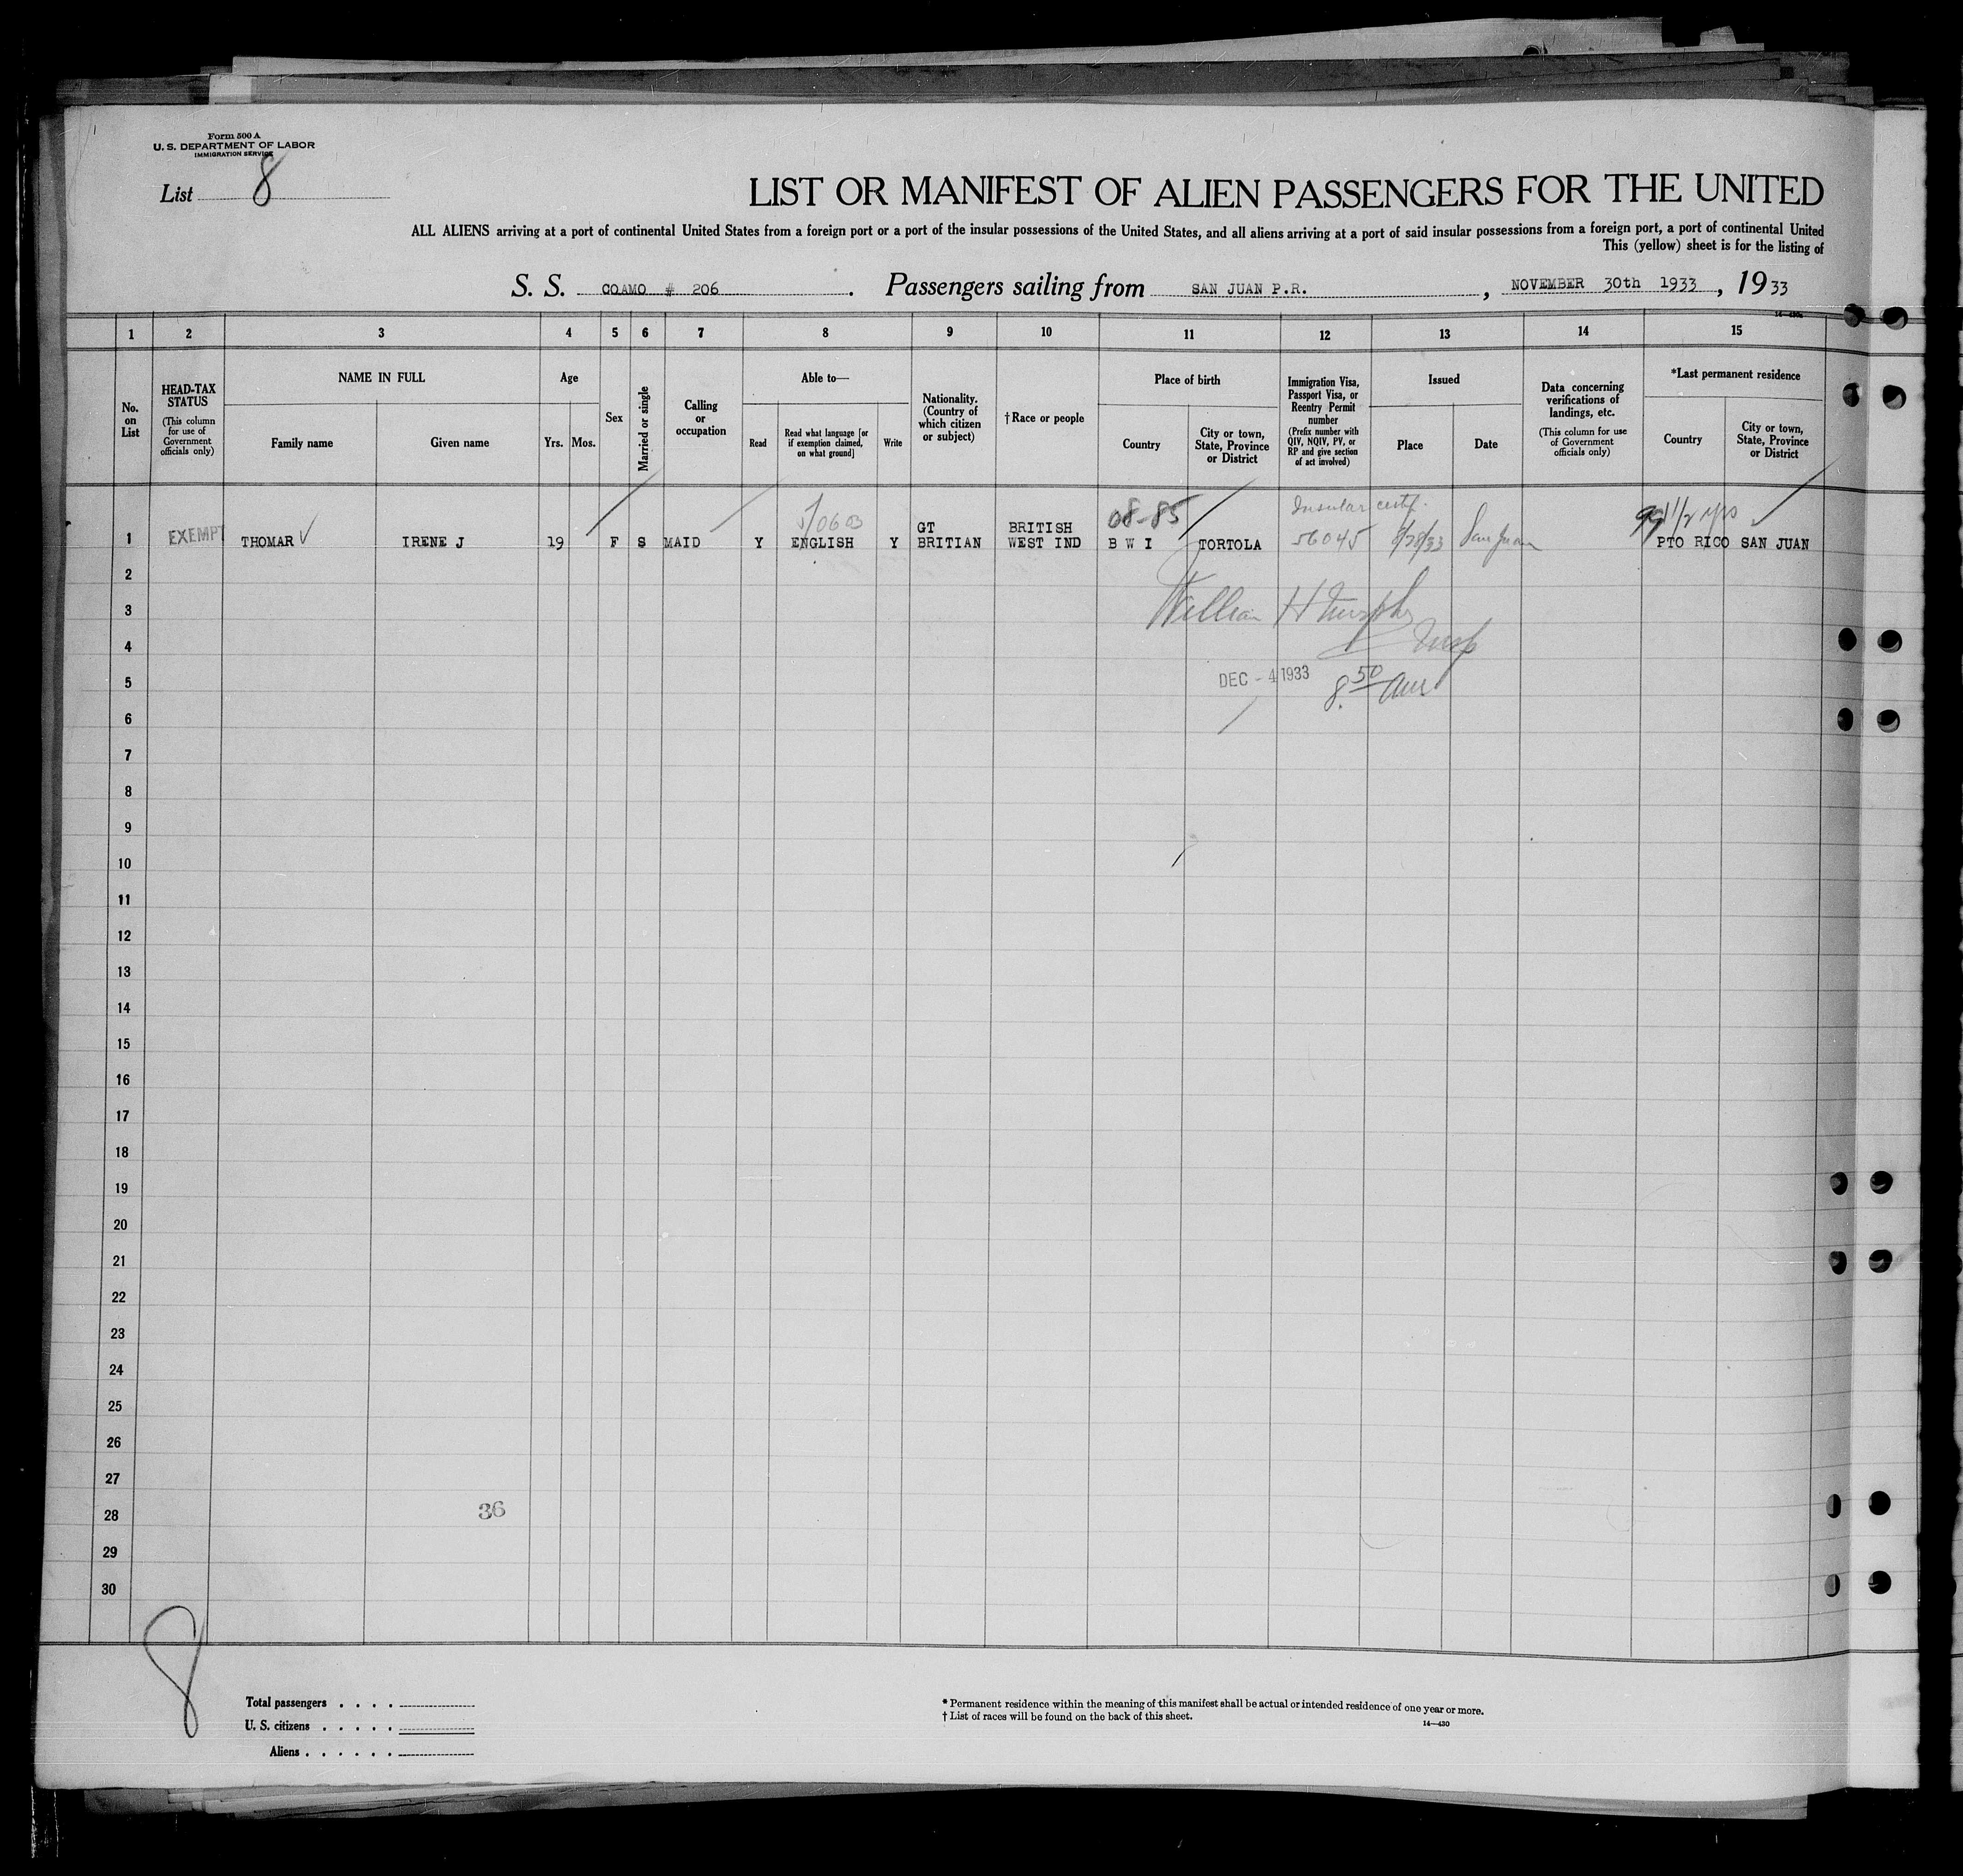 Form 500 A
U. S. DEPARTMENT OF LABOR
IMMIGRATION SERVICE
List 8
LIST OR MANIFEST OF ALIEN PASSENGERS FOR THE UNITED
ALL ALIENS arriving at a port of continental United States from a foreign port or a port of the insular possessions of the United States, and all aliens arriving at a port of said insular possessions from a foreign port, a port of continental United
This (yellow) sheet is for the listing of
S. S. COAMO # 206 . Passengers sailing from SAN JUAN P.R. , NOVEMBER 30th 1933 , 1933
1 2 3 4 5 6 7 8 9 10 11 12 13 14 15
No. on List
HEAD-TAX STATUS (This column for use of Government officials only)
NAME IN FULL
Family name
Given name
Age
Yrs.
Mos.
Sex
Married or single
Calling or occupation
Able to—
Read
Read what language [or if exemption claimed, on what ground]
Write
Nationality. (Country of which citizen or subject)
†Race or people
Place of birth
Country
City or town, State, Province or District
Immigration Visa, Passport Visa, or Reentry Permit number (Prefix number with QIV, NQIV, PV, or RP and give section of act involved)
Issued
Place
Date
Data concerning verifications of landings, etc. (This column for use of Government officials only)
*Last permanent residence
Country
City or town, State, Province or District
08-85 Insular certif.
GT BRITISH
1 EXEMPT THOMAR IRENE J 19 F S MAID Y ENGLISH Y BRITIAN WEST IND B W I TORTOLA 56045 8/28/33 San Juan PTO RICO SAN JUAN
2
3 William H Murphy
4 Insp
5 DEC - 4 1933 8.50 am
6
7
8
9
10
11
12
13
14
15
16
17
18
19
20
21
22
23
24
25
26
27
28 36
29
30
8
Total passengers . . . .
U. S. citizens . . . . .
Aliens . . . . . .
* Permanent residence within the meaning of this manifest shall be actual or intended residence of one year or more.
† List of races will be found on the back of this sheet.
14—430